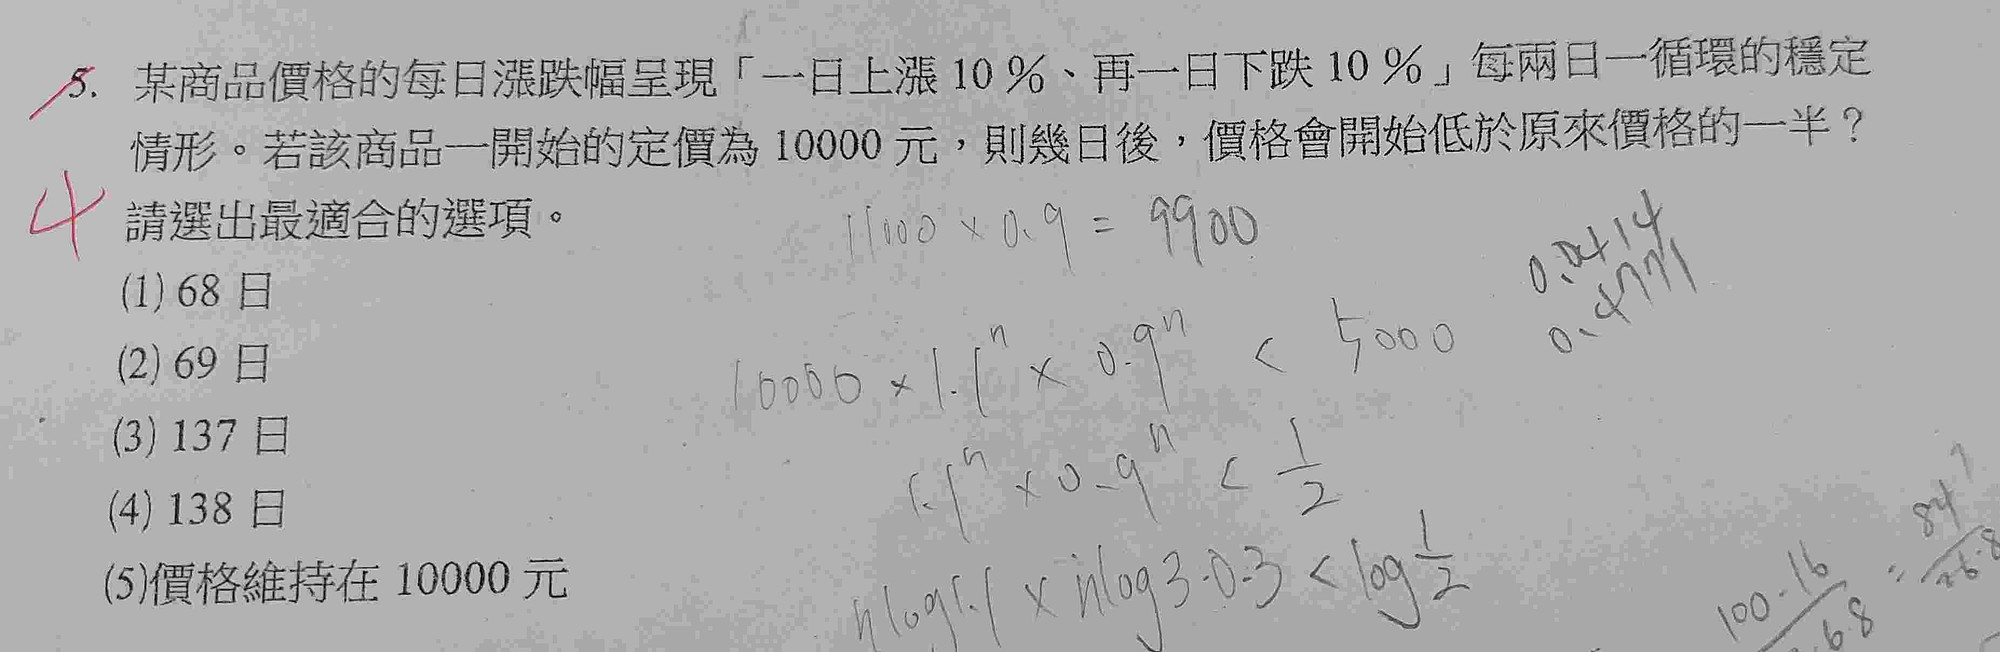 5. 某商品價格的每日漲跌幅呈現「一日上漲 10 %、再一日下跌 10 %」每兩日一循環的穩定
情形。若該商品一開始的定價為 10000 元,則幾日後,價格會開始低於原來價格的一半?
4 請選出最適合的選項。
11000 × 0.9 = 9900
0.0414
0.4771
(1) 68 日
(2) 69 日
10000 × 1.1ⁿ × 0.9ⁿ < 5000
(3) 137 日
1.1ⁿ × 0.9ⁿ < 1/2
(4) 138 日
(5)價格維持在 10000 元
nlog1.1 × nlog3·0.3 < log 1/2